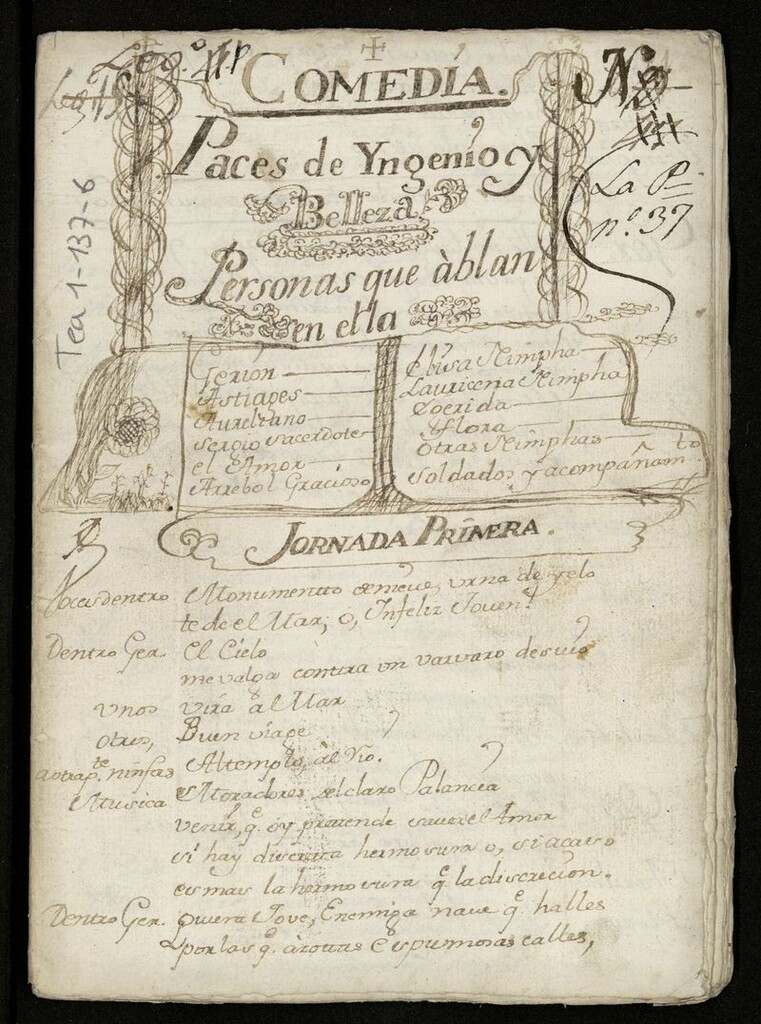 COMEDÍA.
Paces de Yngenio y
Belleza
Personas que àblan
en ella
La P.
nº. 37
Tea 1-137-6
Gerion
Astiages
Aureliano
Sergio Sacerdote
el Amor
Arrebol Gracioso
Elusa Nimpha
Lauricena Nimpha
Doerida
Flora
Otras Nimphas
Soldados y acompañam.to
JORNADA PRIMERA.
Voces dentro Monumentto de nieve, urna de yelo
te de el Mar; o, Ynfeliz Joven!
Dentro Ger. El Cielo
me valga contra un varvaro desvio
unos vira al Mar
otros, Buen viage
a otra p.te ninfas Al templo, àl Rio.
Musica Moradores del claro Palancia
venir, q.e oy pretende saver el Amor
si hay discreta hermosura o, si acaso
es mas la hermosura q.e la discrecion.
Dentro Ger. quiera Jove, Enemiga nave q.e halles
por las q.e àrottas Espumosas calles,